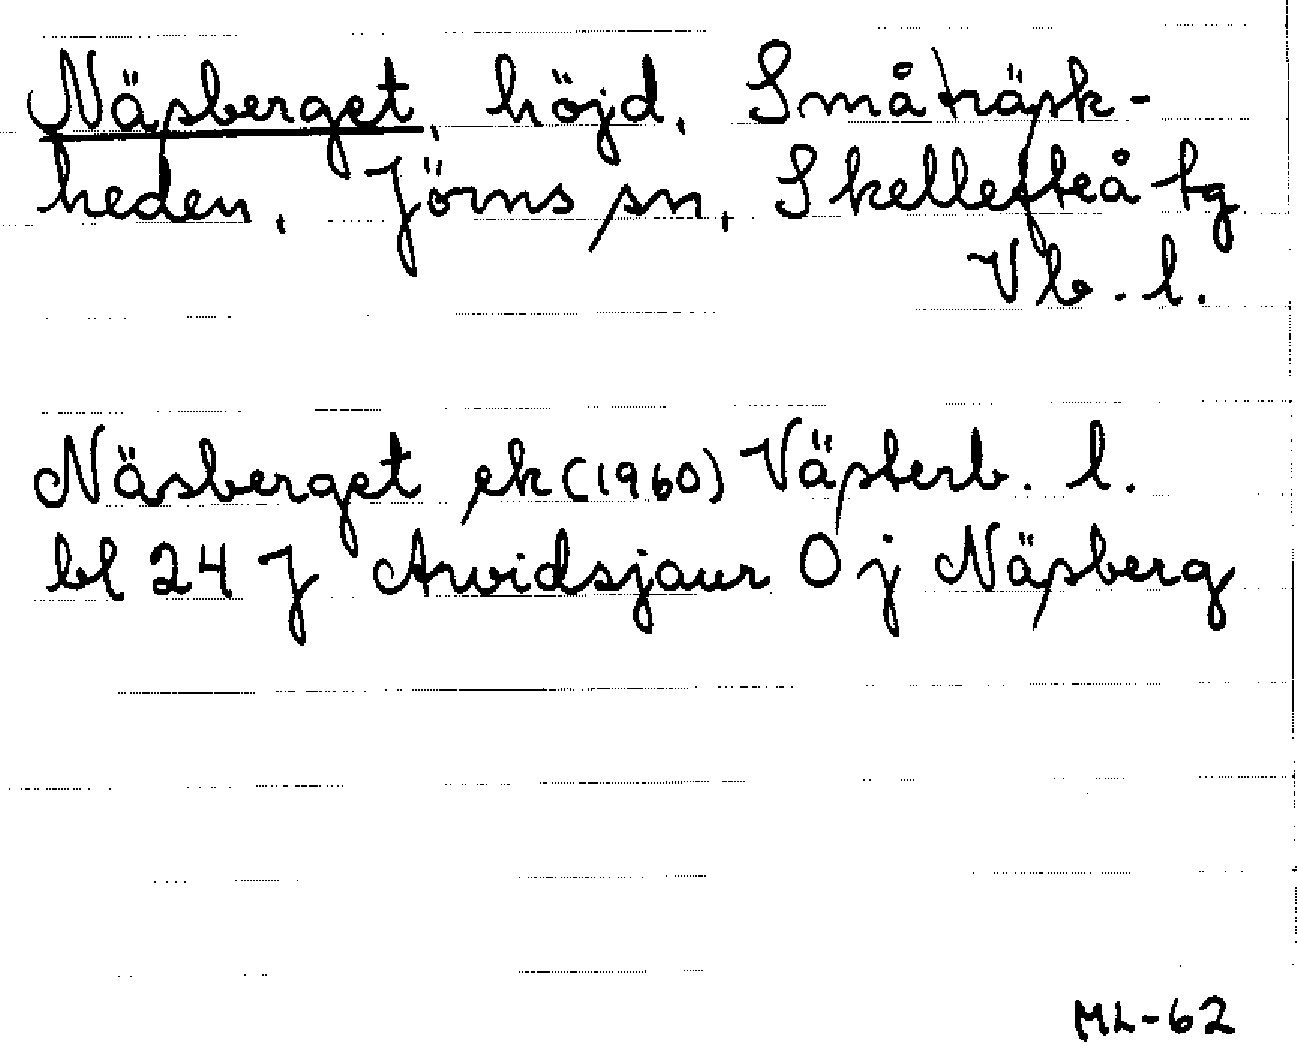 Näsberget, höjd, Småträsk-
heden, Jörns sn, Skellefteå tg
Vb. l.
Näsberget ek (1960) Västerb. l.
bl 24 J Arvidsjaur 0 j Näsberg
ML-62